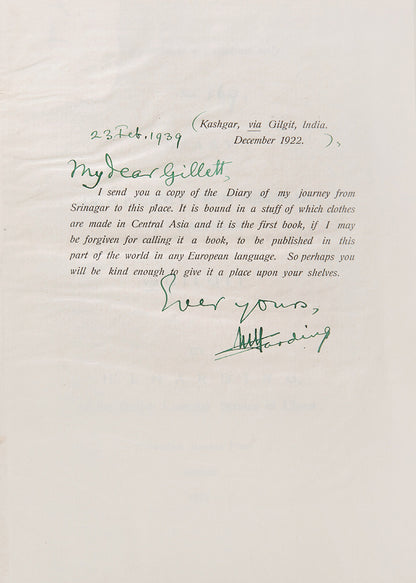 (Kashgar, via Gilgit, India.
23 Feb. 1939 December 1922. ),
My dear Gillett,
I send you a copy of the Diary of my journey from
Srinagar to this place. It is bound in a stuff of which clothes
are made in Central Asia and it is the first book, if I may
be forgiven for calling it a book, to be published in this
part of the world in any European language. So perhaps you
will be kind enough to give it a place upon your shelves.
Ever yours,
Harding